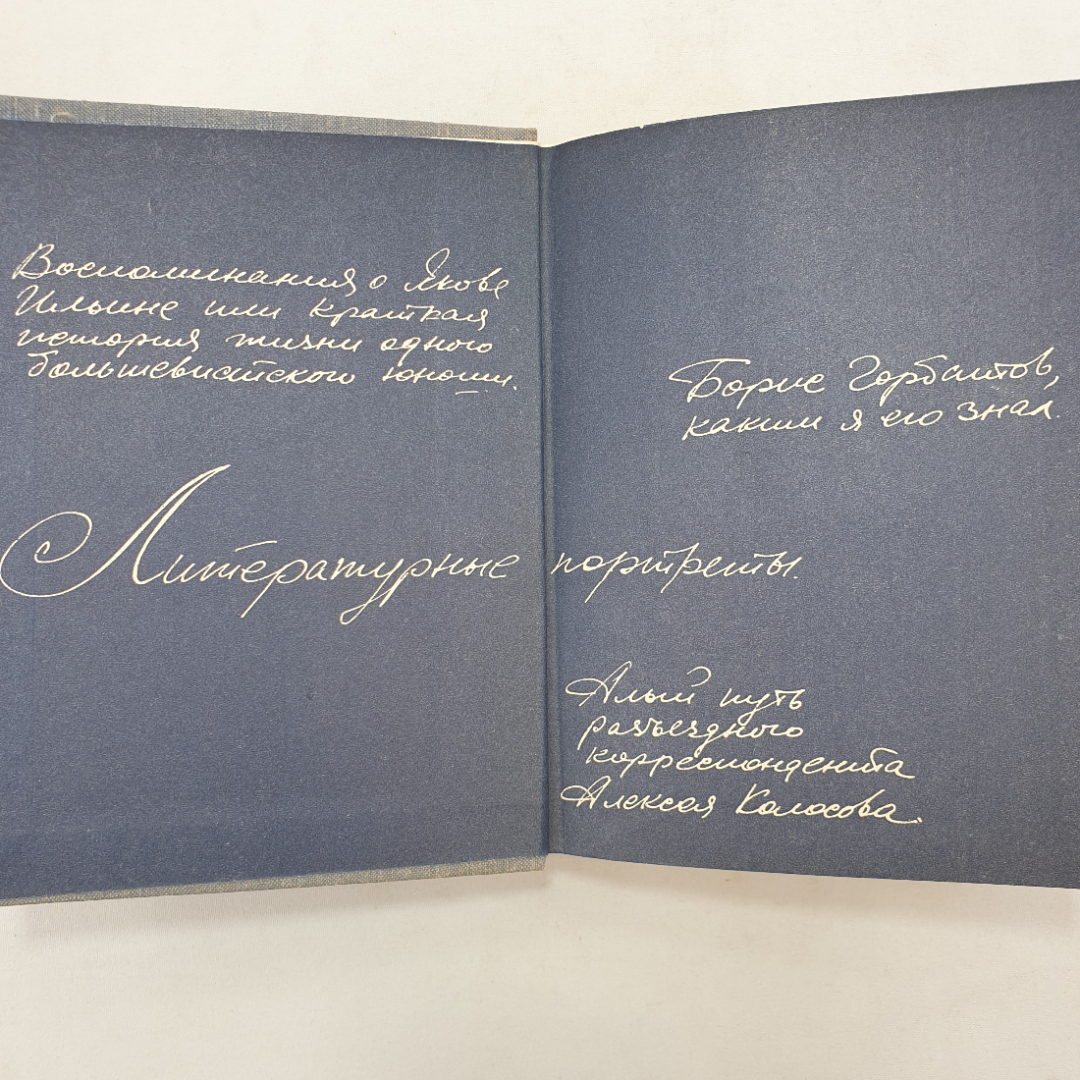 Воспоминания о Якове
Ильине или краткая
история жизни одного
большевистского юноши.
Борис Горбатов,
каким я его знал.
Литературные портреты.
Алый путь
разъездного
корреспондента
Алексея Колосова.